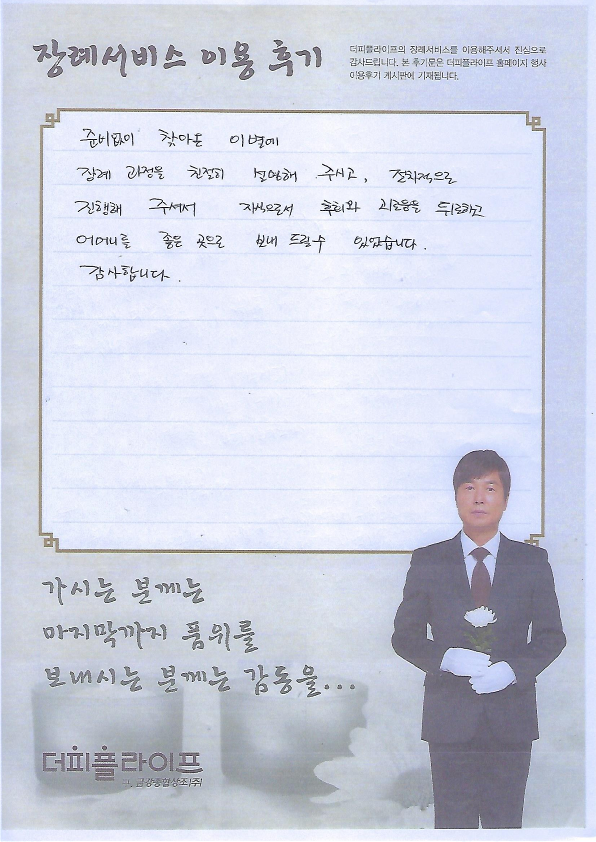 장례서비스 이용 후기
더피플라이프의 장례서비스를 이용해주셔서 진심으로
감사드립니다. 본 후기문은 더피플라이프 홈페이지 행사
이용후기 게시판에 기재됩니다.
준비없이 찾아온 이별에
장례 과정을 친절히 설명해 주시고, 절차적으로
진행해 주셔서 자식으로서 후회와 괴로움을 뒤로하고
어머니를 좋은 곳으로 보내 드릴수 있었습니다.
감사합니다.
가시는 분께는
마지막까지 품위를
보내시는 분께는 감동을...
더피플라이프
구, 금강종합상조(주)